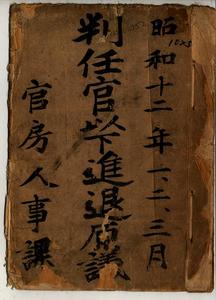 昭和十二年一、二、三月
判任官以下進退原議
官房人事課